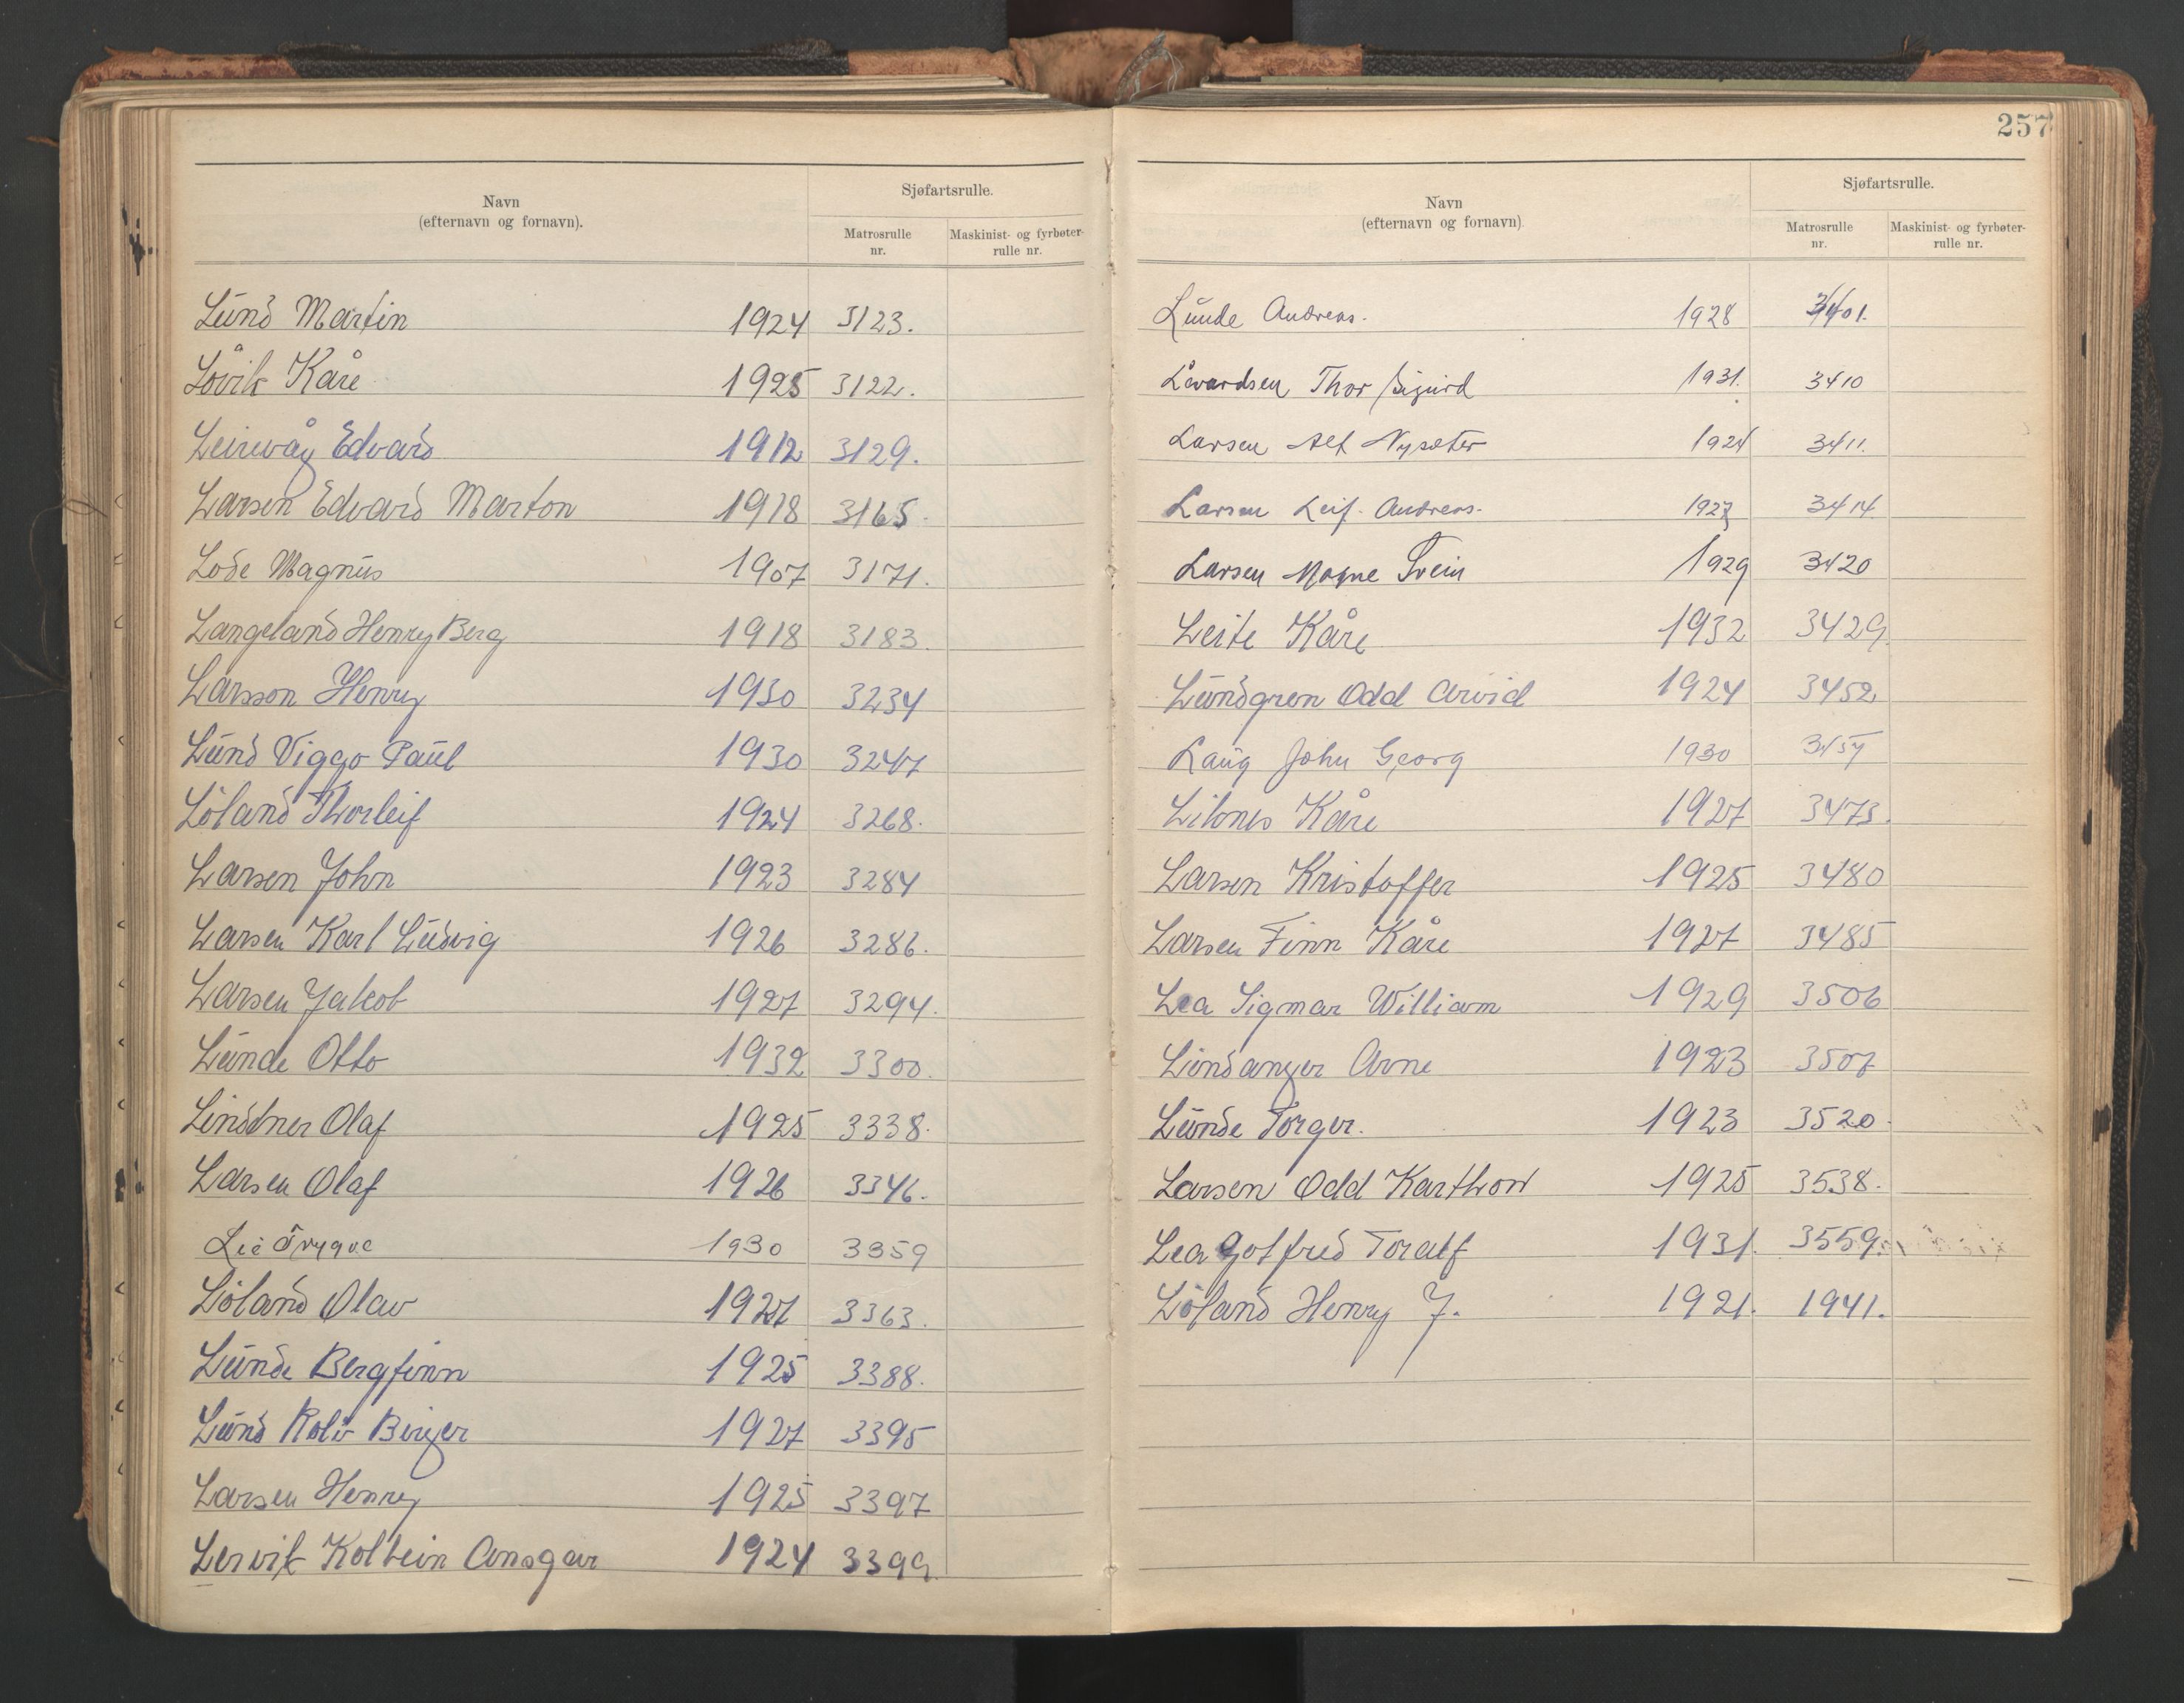 Navn
(efternavn og fornavn).
Sjøfartsrulle.
Matrosrulle
nr.
Maskinist- og fyrbøter-
rulle nr.
Lund Martin 1924 3123.
Lövik Kåre 1925 3122.
Leirvåg Edvard 1912 3129.
Larsen Edvard Marton 1918 3165.
Lode Magnus 1907 3171.
Langeland Henry Berg 1918 3183.
Larsson Henry 1930 3234
Lund Viggo Paul 1930 3247
Löland Thorleif 1924 3268.
Larsen John 1923 3284
Larsen Karl Ludvig 1926 3286.
Larsen Jakob 1927 3294.
Lunde Otto 1932 3300.
Lindtner Olaf 1925 3338.
Larsen Olaf 1926 3346.
Lie Trygve 1930 3359
Löland Olav 1927 3363.
Lunde Bergfinn 1925 3388.
Lund Rolv Birger 1927 3395
Larsen Henry 1925 3397
Lervik Kolbein Ansgar 1924 3399.
257
Navn
(efternavn og fornavn).
Sjøfartsrulle.
Matrosrulle
nr.
Maskinist- og fyrbøter-
rulle nr.
Lunde Andreas. 1928 3401.
Levardsen Thor Sigurd 1931. 3410
Larsen Alf Nysæter 1924 3411.
Larsen Leif Andreas. 1927 3414
Larsen Magne Svein 1929 3420
Leite Kåre 1932 3429.
Lundgren Odd Arvid 1924 3452
Laug John Georg 1930 3457
Litones Kåre 1927 3473.
Larsen Kristoffer 1925 3480
Larsen Finn Kåre 1927 3485
Lea Sigmar William 1929 3506
Lindanger Arne 1923 3507
Lunde Torger. 1923 3520.
Larsen Odd Karthon 1925 3538.
Lea Gotfred Toralf 1931. 3559.
Löland Henry J. 1921. 1941.